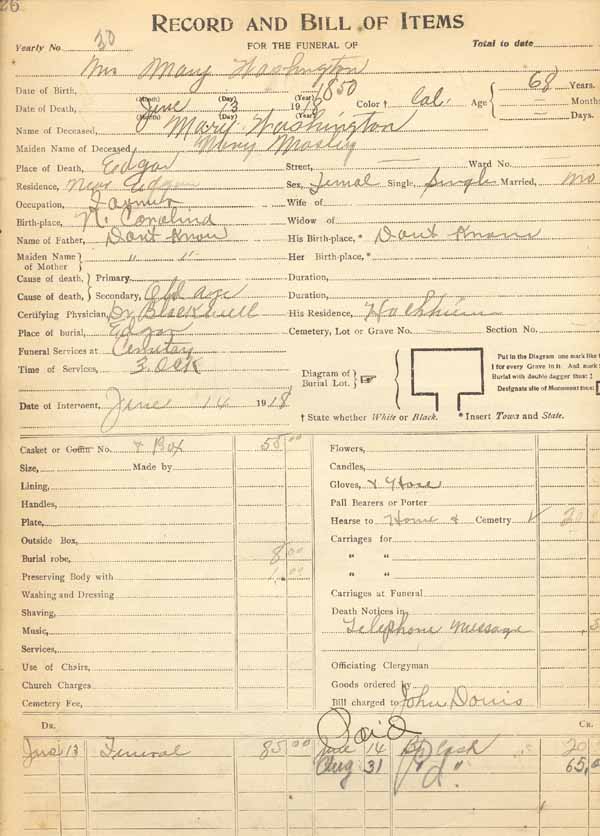 26
RECORD AND BILL OF ITEMS
Yearly No. 30 FOR THE FUNERAL OF Total to date
Mrs Mary Washington
Date of Birth, (Month) (Day) 1850 (Year) 68 Years.
Date of Death, June (Month) 13 (Day) 1918 (Year) Color † Col. Age Months
Days.
Name of Deceased, Mary Washington
Maiden Name of Deceased, Mary Mosley
Place of Death, Edgar Street, — Ward No. —
Residence, Near Edgar Sex, Femal Single, Single Married, no
Occupation, Farmer Wife of
Birth-place, N. Carolina Widow of
Name of Father, Dont Know His Birth-place, * Dont Know
Maiden Name of Mother " " Her Birth-place, *
Cause of death, Primary Duration,
Cause of death, Secondary, Old age Duration,
Certifying Physician, Dr Blackwell His Residence, Hochheim
Place of burial, Edgar Cemetery, Lot or Grave No. Section No.
Funeral Services at Cemetary
Time of Services, 3. Oclk
Diagram of Burial Lot.
Put in the Diagram one mark like t
for every Grave in it. And mark
Burial with double dagger thus: ‡
Designate site of Monument thus:
Date of Interment, June 14 1918
† State whether White or Black. * Insert Town and State.
Casket or Coffin No. & Box 58 00 Flowers,
Size, Made by Candles,
Lining, Gloves, & Hose
Handles, Pall Bearers or Porter
Plate, Hearse to Home & Cemetry 20 00
Outside Box, Carriages for
Burial robe, 8 00 " "
Preserving Body with " "
Washing and Dressing Carriages at Funeral
Shaving, Death Notices in
Music, Telephone Message
Services,
Use of Chairs, Officiating Clergyman
Church Charges Goods ordered by
Cemetery Fee, Bill charged to John Donis
DR. Paid CR.
June 13 Funeral 85 00 June 14 By Cash 20
Aug 31 " " 65,